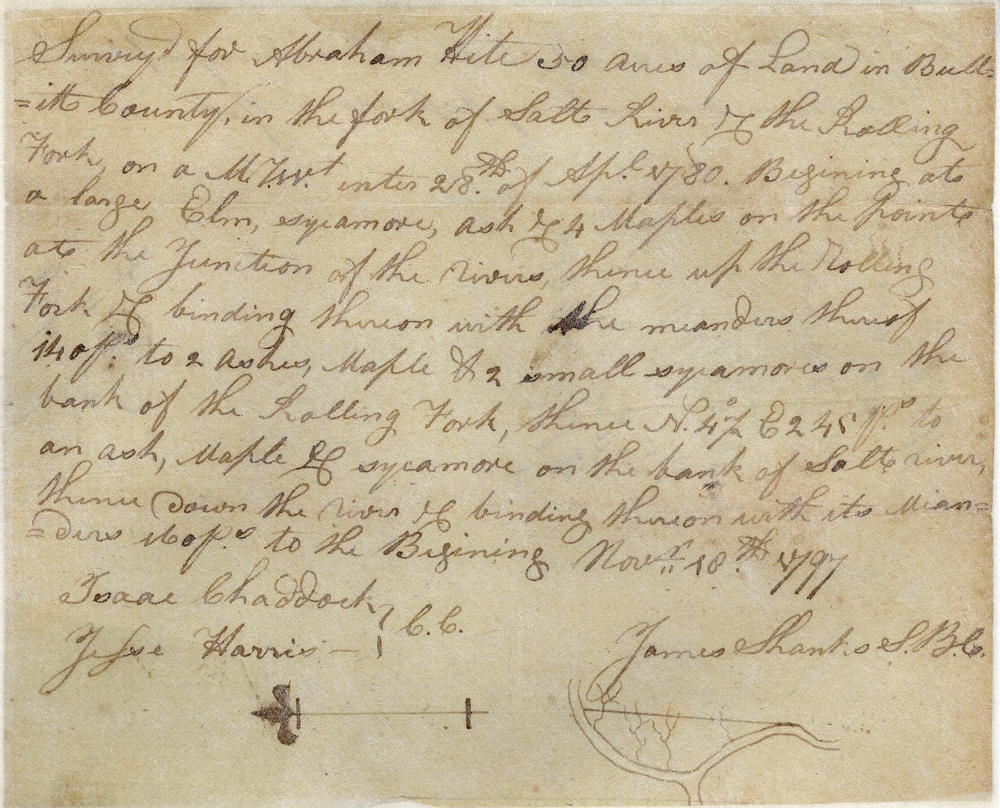 Survey'd for Abraham Hite 50 acres of Land in Bull=
=itt County, in the fork of Salt River & the Rolling
Fork, on a M.T.W.t enter'd 28.th of Ap.l 1780. Begining at
a large Elm, sycamore, ash & 4 Maples on the point
at the Junction of the rivers, thence up the Rolling
Fork & binding thereon with the meanders thereof
140 p.s to 2 ashes, Maple & 2 small sycamores on the
bank of the Rolling Fork, thence N. 4° E 245 p.s to
an ash, Maple & sycamore on the bank of Salt river,
thence down the river & binding thereon with its Mean=
=ders 160 p.s to the Begining Nov.r 18.th 1797
Isaac Chaddock
Jesse Harris — } C.C.
James Shanks S.B.C.